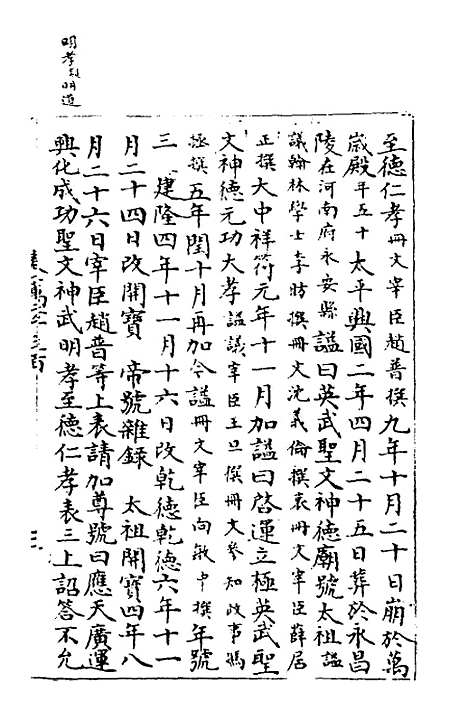 明孝疑明道
至德仁孝冊文宰臣趙普撰九年十月二十日崩於萬
歲殿年五十太平興國二年四月二十五日葬於永昌
陵在河南府永安縣諡曰英武聖文神德廟號太祖諡
議翰林學士李昉撰冊文沈義倫撰哀冊文宰臣薛居
正撰大中祥符元年十一月加諡曰啓運立極英武聖
文神德元功大孝諡議宰臣王旦撰冊文參知政事馮
拯撰五年閏十月再加今諡冊文宰臣向敏中撰年號
三 建隆四年十一月十六日改乾德乾德六年十一
月二十四日改開寶 帝號雜錄 太祖開寶四年八
月二十六日宰臣趙普等上表請加尊號曰應天廣運
興化成功聖文神武明孝至德仁孝表三上詔答不允
三